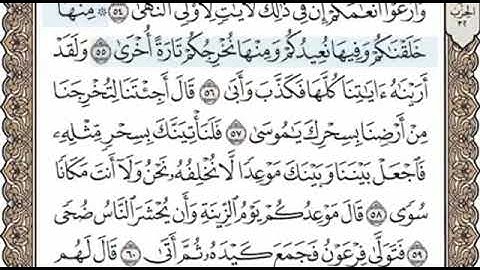 وَٱرْعَوْا۟ أَنْعَٰمَكُمْ إِنَّ فِى ذَٰلِكَ لَءَايَٰتٍ لِّأُو۟لِى ٱلنُّهَىٰ ٥٤ ۞ مِنْهَا
خَلَقْنَٰكُمْ وَفِيهَا نُعِيدُكُمْ وَمِنْهَا نُخْرِجُكُمْ تَارَةً أُخْرَىٰ ٥٥ وَلَقَدْ
أَرَيْنَٰهُ ءَايَٰتِنَا كُلَّهَا فَكَذَّبَ وَأَبَىٰ ٥٦ قَالَ أَجِئْتَنَا لِتُخْرِجَنَا
مِنْ أَرْضِنَا بِسِحْرِكَ يَٰمُوسَىٰ ٥٧ فَلَنَأْتِيَنَّكَ بِسِحْرٍ مِّثْلِهِۦ
فَٱجْعَلْ بَيْنَنَا وَبَيْنَكَ مَوْعِدًا لَّا نُخْلِفُهُۥ نَحْنُ وَلَآ أَنتَ مَكَانًا
سُوًى ٥٨ قَالَ مَوْعِدُكُمْ يَوْمُ ٱلزِّينَةِ وَأَن يُحْشَرَ ٱلنَّاسُ ضُحًى
٥٩ فَتَوَلَّىٰ فِرْعَوْنُ فَجَمَعَ كَيْدَهُۥ ثُمَّ أَتَىٰ ٦٠ قَالَ لَهُم
الحزب
٣٢